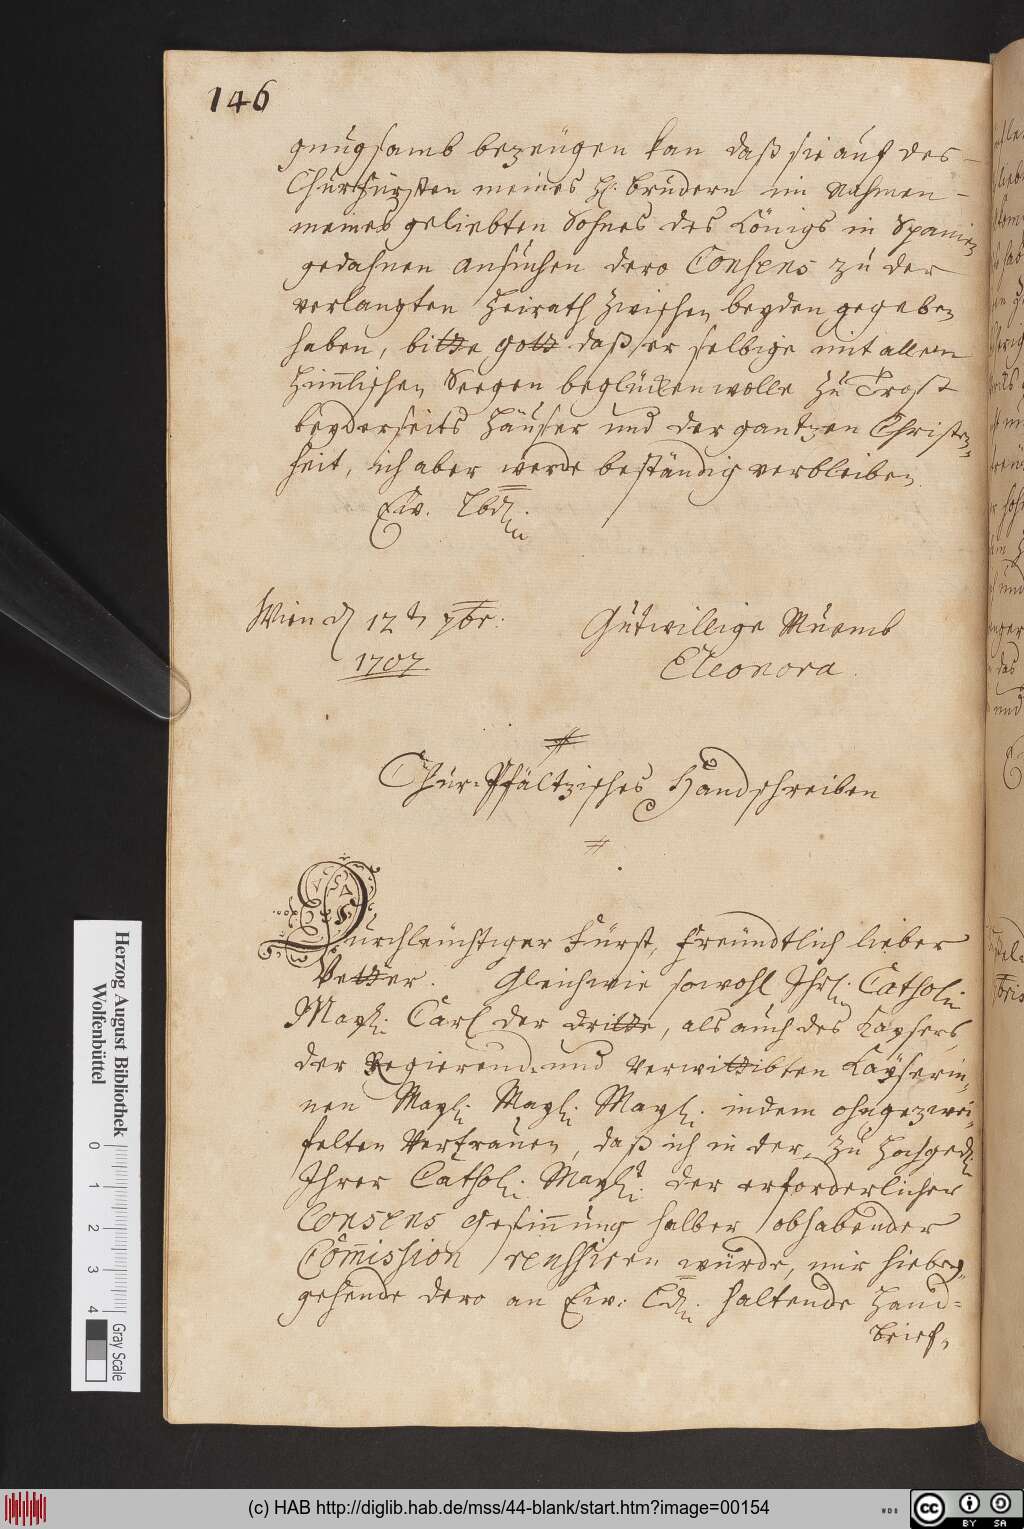 146
gnugsamb bezeugen kan daß sie auf des
Churfürsten meines H: brudern im Nahmen
meines geliebten Sohnes des Königs in Spanien
gedahnen ansuchen dero Consens zu der
verlangten Heirath zwischen beyden gegeben
haben, bitte gott daß er selbige mit allem
Himlischen Seegen beglücken wolle zu Trost
beyderseits Häuser und der gantzen Christen-
heit, ich aber werde beständig verbleiben
Ew. Lbd.
Wien d 12t 7br:
1707.
Gutwillige Muemb
Eleonora.
Chur-Pfältzisches Handschreiben
Durchleuchtiger Fürst, freundtlich lieber
Vetter. Gleichwie sowohl Ihrl: Cathol:
Mayl: Carl der dritte, als auch des Kaysers,
der Regierend- und verwittibten Kayserin-
nen Mayl: Mayl: Mayl: indem ohngezwei-
felten Vertrauen, daß ich in der, zu Hochged:
Ihrer Cathol: Maylt: der erforderlicher
Consens gesinnung halber obhabender
Commission reussiren würde, mir hiebey-
gehende dero an Ew: Ld: haltende Hand-
brief,
Herzog August Bibliothek
Wolfenbüttel
0 1 2 3 4
Gray Scale
(c) HAB http://diglib.hab.de/mss/44-blank/start.htm?image=00154
WDB
cc BY SA